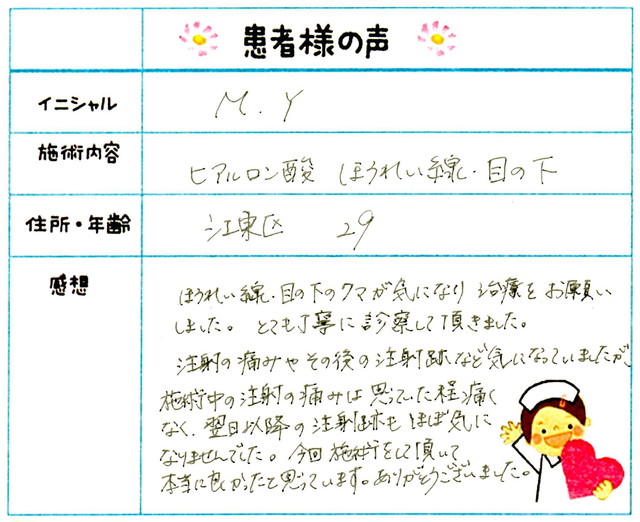 患者様の声
イニシャル
M.Y
施術内容
ヒアルロン酸 ほうれい線・目の下
住所・年齢
江東区 29
感想
ほうれい線・目の下のクマが気になり治療をお願い
しました。とても丁寧に診察して頂きました。
注射の痛みやその後の注射跡など気になっていましたが、
施術中の注射の痛みは思っていた程痛く
なく、翌日以降の注射跡もほぼ気に
なりませんでした。今回施術をして頂いて
本当に良かったと思っています。ありがとうございました。